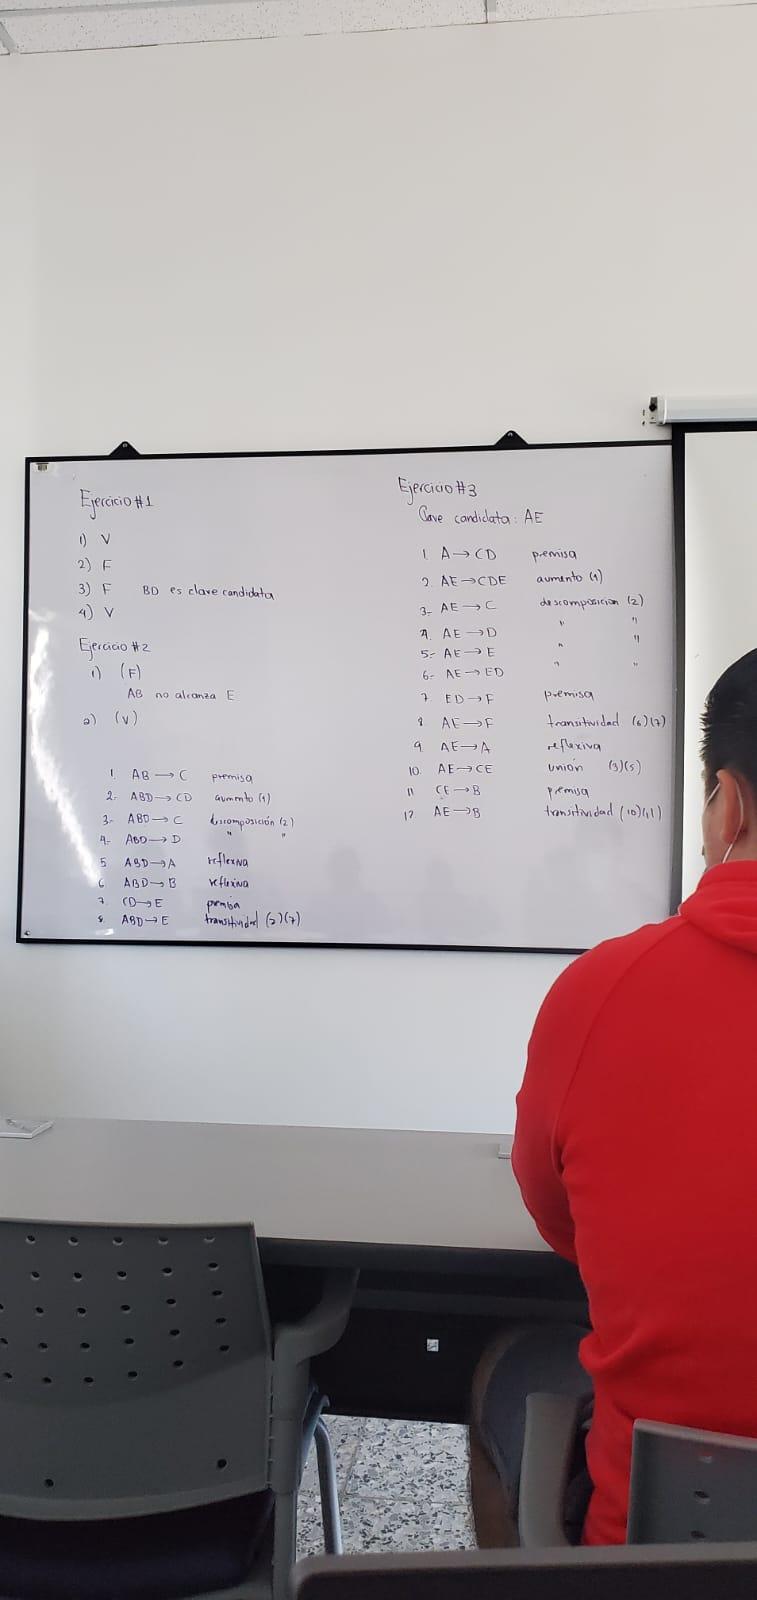 Ejercicio #1
1) V
2) F
3) F BD es clave candidata
4) V
Ejercicio #2
1) (F)
AB no alcanza E
2) (V)
1. AB → C premisa
2.- ABD → CD aumento (1)
3.- ABD → C descomposición (2)
4.- ABD → D " "
5 ABD → A reflexiva
6 ABD → B reflexiva
7. CD → E premisa
8. ABD → E transitividad (2)(7)
Ejercicio #3
Clave candidata: AE
1. A → CD premisa
2. AE → CDE aumento (1)
3.- AE → C descomposición (2)
4. AE → D " "
5.- AE → E " "
6.- AE → ED " "
7 ED → F premisa
8 AE → F transitividad (6)(7)
9. AE → A reflexiva
10. AE → CE unión (3)(5)
11 CE → B premisa
12 AE → B transitividad (10)(11)